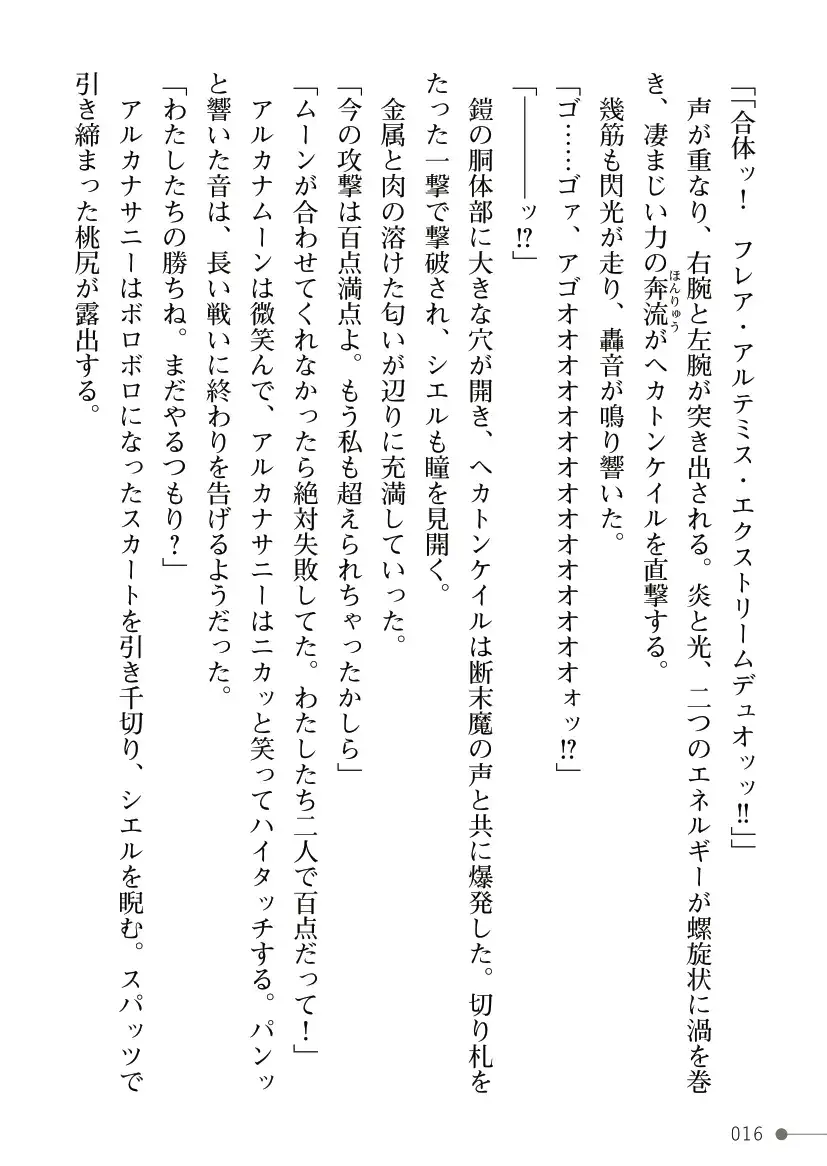 「「合体ッ！　フレア・アルテミス・エクストリームデュオッッ!!」」
　声が重なり、右腕と左腕が突き出される。炎と光、二つのエネルギーが螺旋状に渦を巻
き、凄まじい力の奔流がヘカトンケイルを直撃する。
ほんりゅう
　幾筋も閃光が走り、轟音が鳴り響いた。
「ゴ……ゴァ、アゴオオオオオオオオオオオオオオオオォッ!?」
「――――ッ!?」
　鎧の胴体部に大きな穴が開き、ヘカトンケイルは断末魔の声と共に爆発した。切り札を
たった一撃で撃破され、シエルも瞳を見開く。
　金属と肉の溶けた匂いが辺りに充満していった。
「今の攻撃は百点満点よ。もう私も超えられちゃったかしら」
「ムーンが合わせてくれなかったら絶対失敗してた。わたしたち二人で百点だって！」
　アルカナムーンは微笑んで、アルカナサニーはニカッと笑ってハイタッチする。パンッ
と響いた音は、長い戦いに終わりを告げるようだった。
「わたしたちの勝ちね。まだやるつもり？」
　アルカナサニーはボロボロになったスカートを引き千切り、シエルを睨む。スパッツで
引き締まった桃尻が露出する。
016